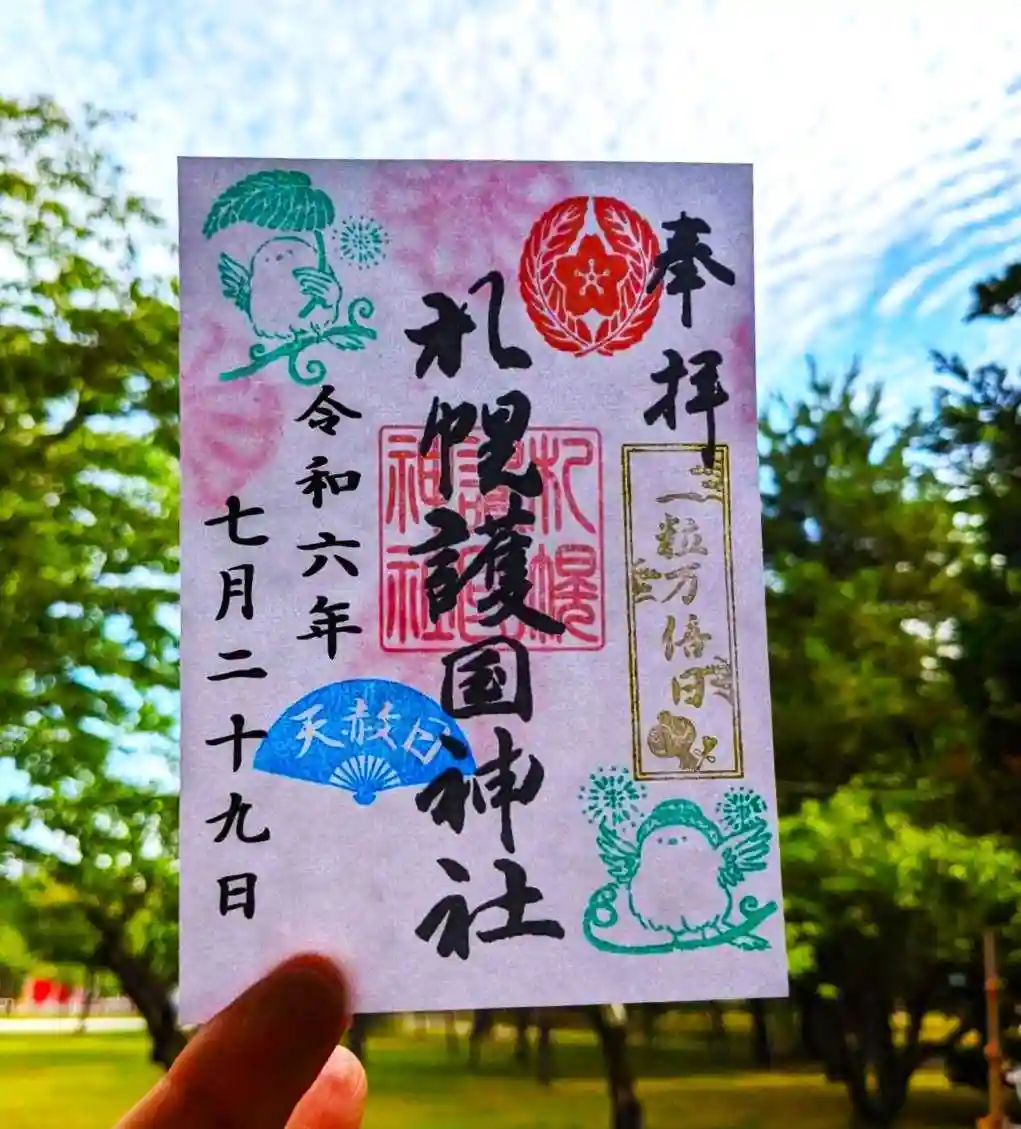 奉拝
一粒万倍日
札幌護国神社
札幌
護国
神社
令和六年
七月二十九日
天赦日